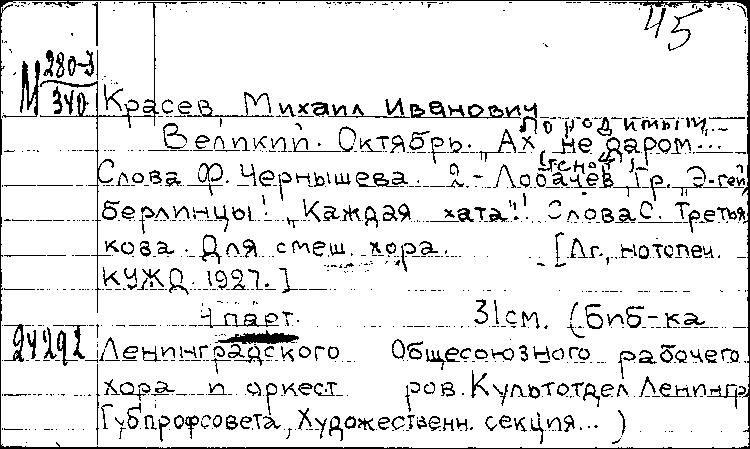 45
М 280-3
340
Красев, Михаил Иванович
По родимым...
Великий Октябрь. „Ах, не даром...
(теноп)
Слова Ф. Чернышева. 2.- Лобачев, Гр. „Э-гей,
берлинцы! „Каждая хата"! Слова С. Третья
кова. Для смеш. хора. [Лг., нотопеч.
КУЖД. 1927.]
4 парт. 31см. (Биб-ка
24292 Ленинградского Общесоюзного рабочего
хора и оркест ров. Культотдел Ленингр
Губпрофсовета, Художественн. секция...)